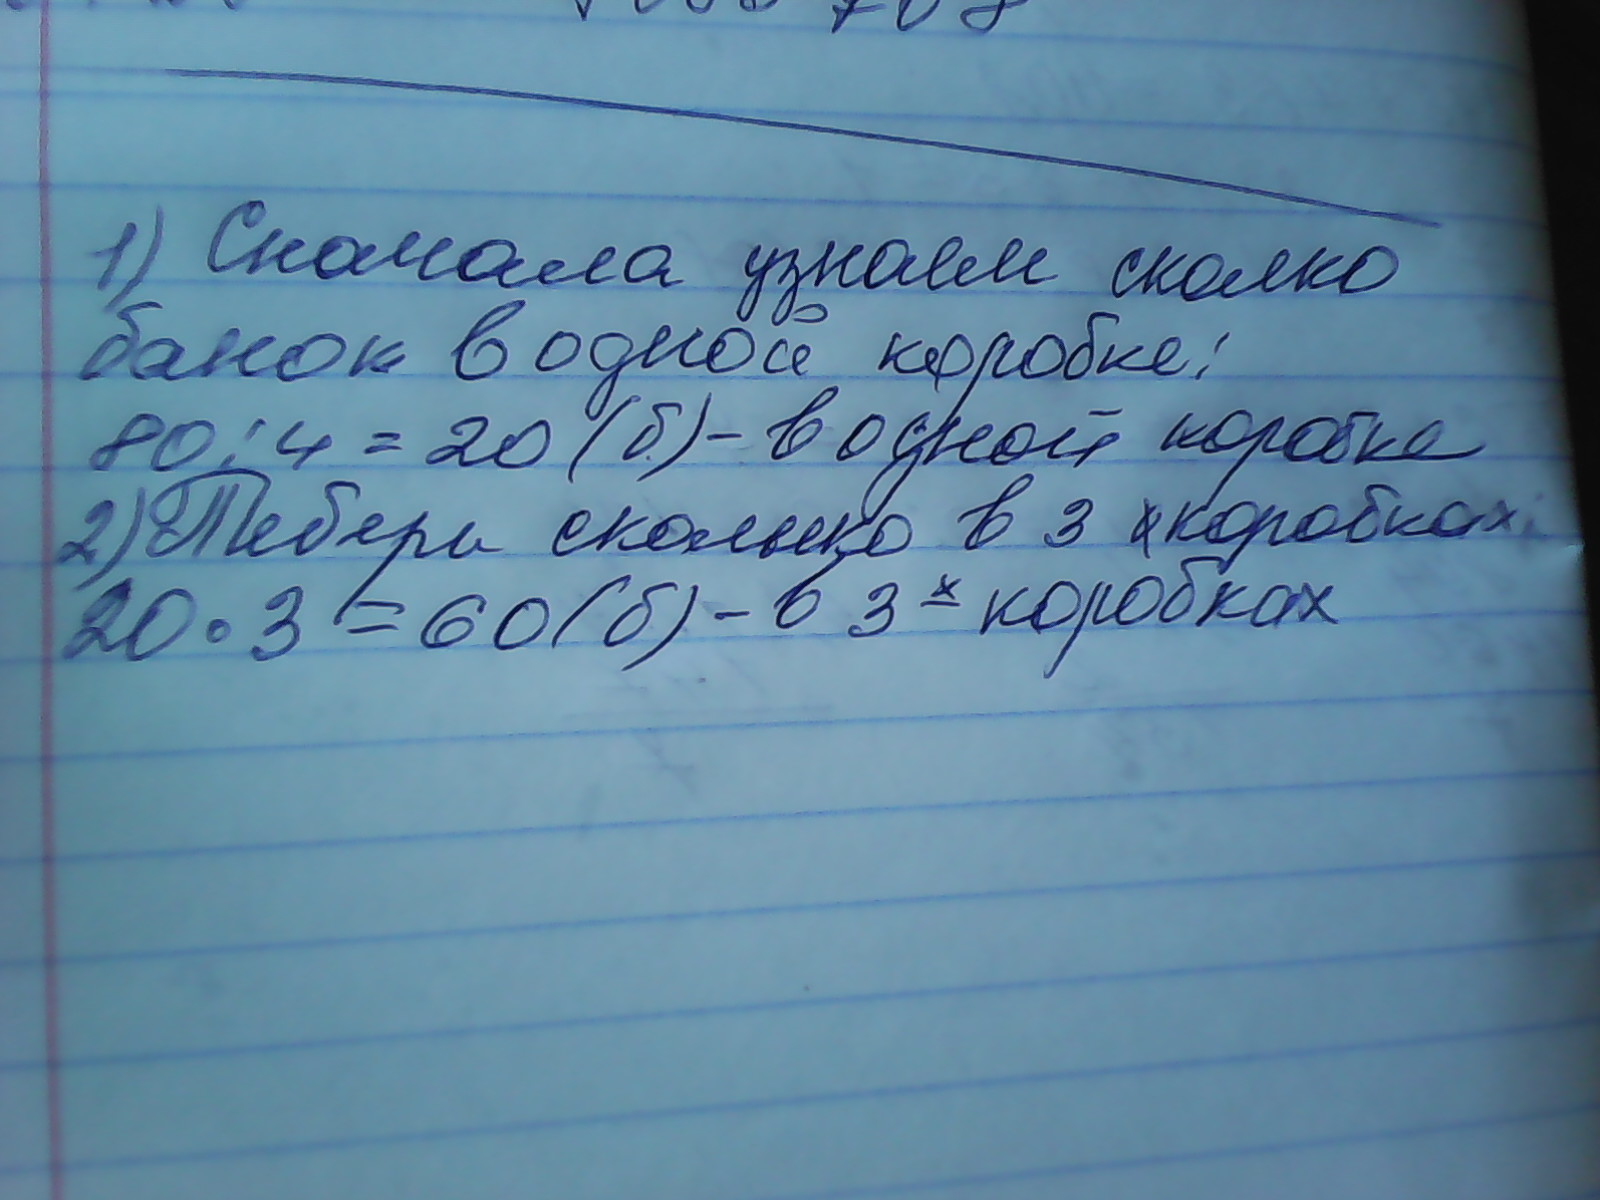 1) Сначала узнаем сколко
банок в одной коробке:
80:4=20(б)-в одной коробке
2) Теберь сколько в 3 коробках:
20•3=60(б)-в 3х коробках